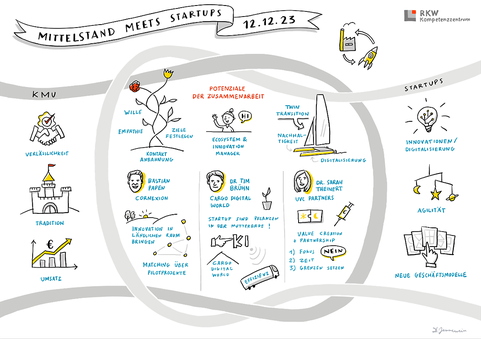 MITTELSTAND MEETS STARTUPS
12.12.23
RKW
Kompetenzzentrum
KMU
VERLÄSSLICHKEIT
TRADITION
€
UMSATZ
POTENZIALE
DER ZUSAMMENARBEIT
WILLE
EMPATHIE
ZIELE
FESTLEGEN
KONTAKT
ANBAHNUNG
HI
ECOSYSTEM &
INNOVATION
MANAGER
TWIN
TRANSITION
NACHHAL-
TIGKEIT
DIGITALISIERUNG
BASTIAN
PAPEN
CORNEXION
INNOVATION IN
LÄNDLICHEN RAUM
BRINGEN
MATCHING ÜBER
PILOTPROJEKTE
DR TIM
BRÜHN
CARGO DIGITAL
WORLD
STARTUP SIND PFLANZEN
IN DER MUTTERERDE!
KI
CARGO
DIGITAL
WORLD
EFFIZIENZ
DR. SARAH
THEINERT
UVC PARTNERS
VALUE CREATION
PARTNERSHIP
1) FOKUS
NEIN
2) ZEIT
3) GRENZEN SETZEN
STARTUPS
INNOVATIONEN/
DIGITALISIERUNG
AGILITÄT
NEUE GESCHÄFTSMODELLE